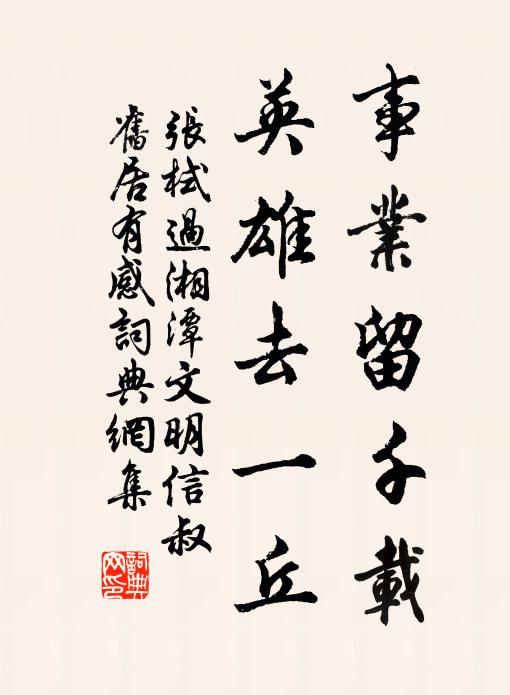 事業留千載
英雄去一丘
張栻過湘潭文明信叔
舊居有感詞典網集
詞典
网印